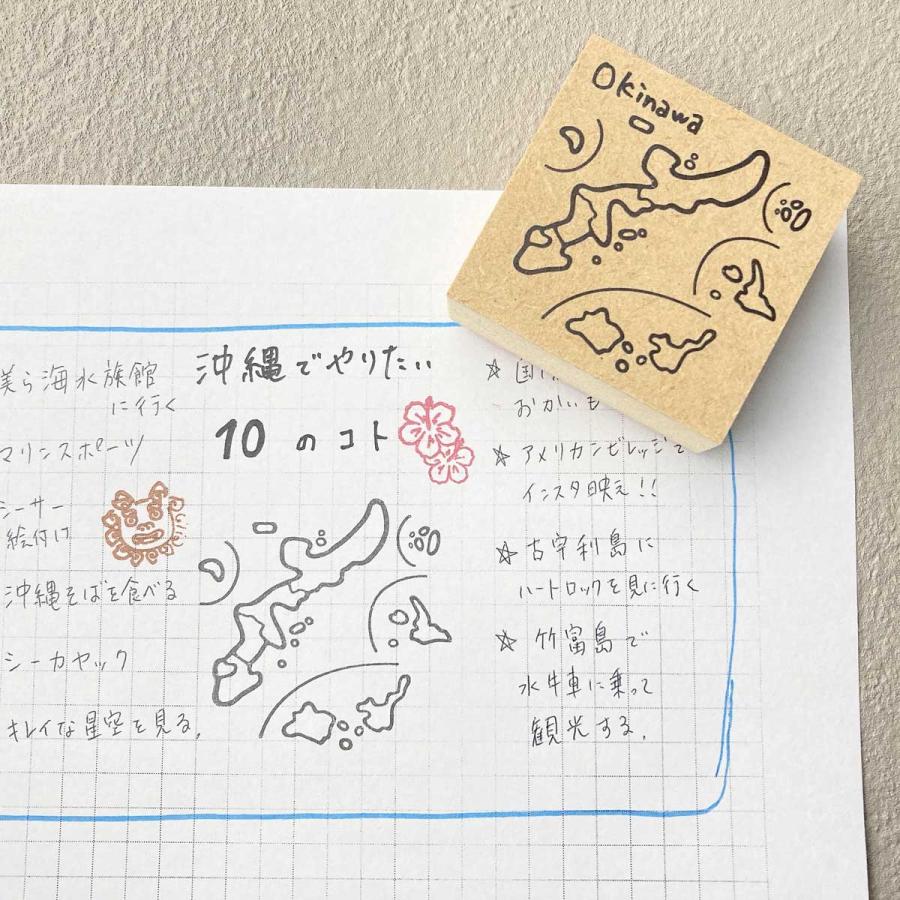 Okinawa
沖縄でやりたい
10のコト
美ら海水族館
に行く
マリンスポーツ
シーサー
絵付け
沖縄そばを食べる
シーカヤック
キレイな星空を見る。
☆ 国
おかいも
☆ アメリカンビレッジで
インスタ映え!!
☆ 古宇利島に
ハートロックを見に行く
☆ 竹富島で
水牛車に乗って
観光する。